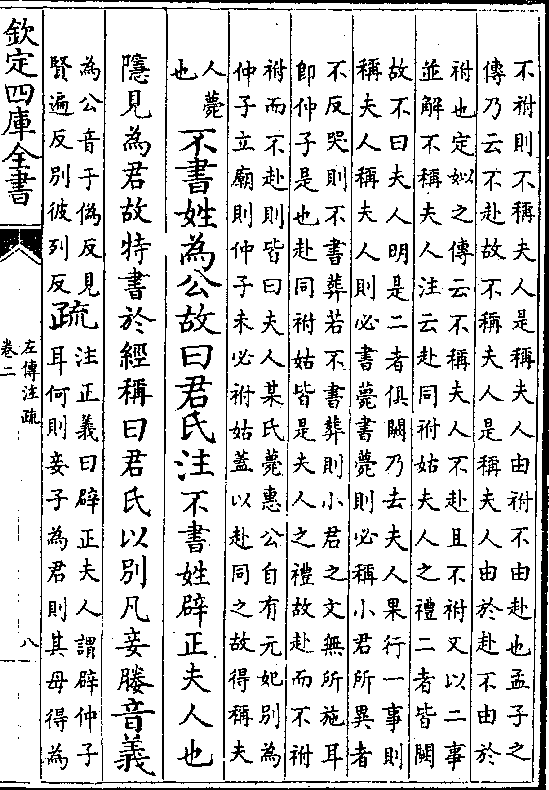 不祔則不稱夫人是稱夫人由祔不由赴也孟子之
傳乃云不赴故不稱夫人是稱夫人由於赴不由於
祔也定姒之傳云不稱夫人不赴且不祔又以二事
並解不稱夫人注云赴同祔姑夫人之禮二者皆闕
故不曰夫人明是二者俱闕乃去夫人果行一事則
稱夫人稱夫人則必書薨書薨則必稱小君所異者
不反哭則不書葬若不書葬則小君之文無所施耳
即仲子是也赴同祔姑皆是夫人之禮故赴而不祔
祔而不赴則皆曰夫人某氏薨惠公自有元妃別為
仲子立廟則仲子未必祔姑蓋以赴同之故得稱夫
人薨
也
不書姓為公故曰君氏注不書姓辟正夫人也
隱見為君故特書於經稱曰君氏以別凡妾媵音義
為公音子偽反見
賢遍反別彼列反
疏
注正義曰辟正夫人謂辟仲子
耳何則妾子為君則其母得為
欽定四庫全書
左傳注疏
卷二
八